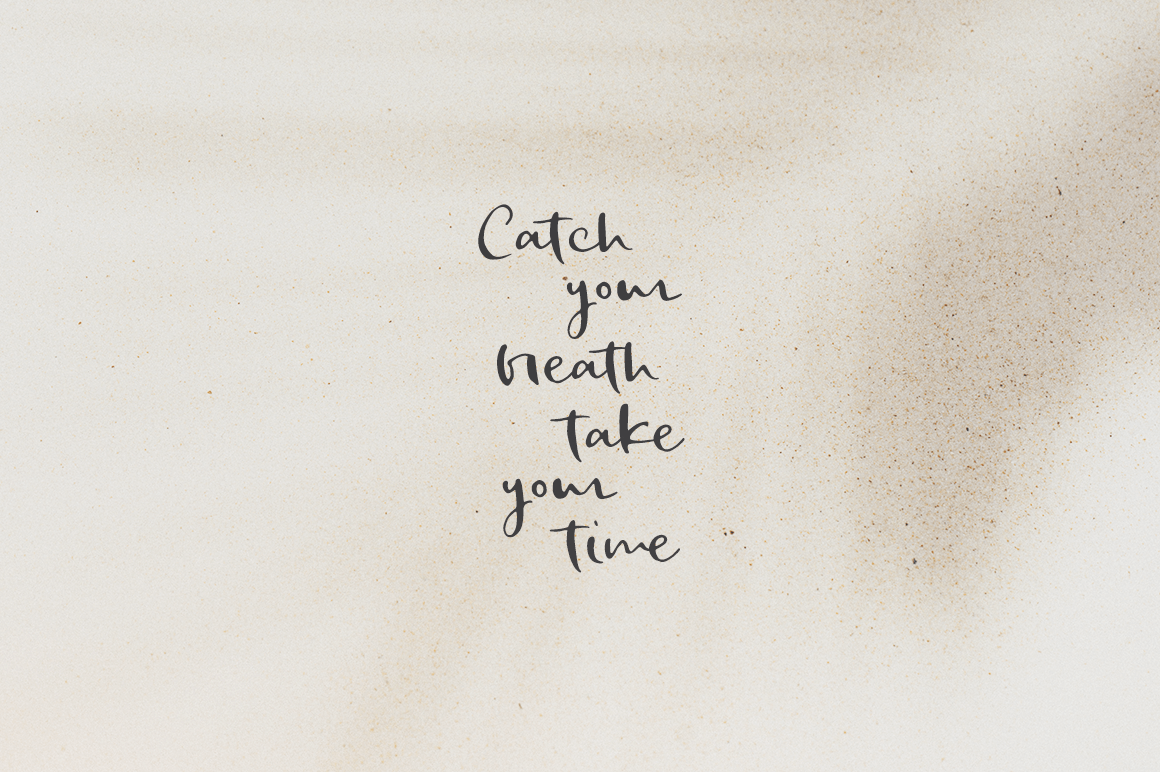 Catch
your
breath
take
your
time